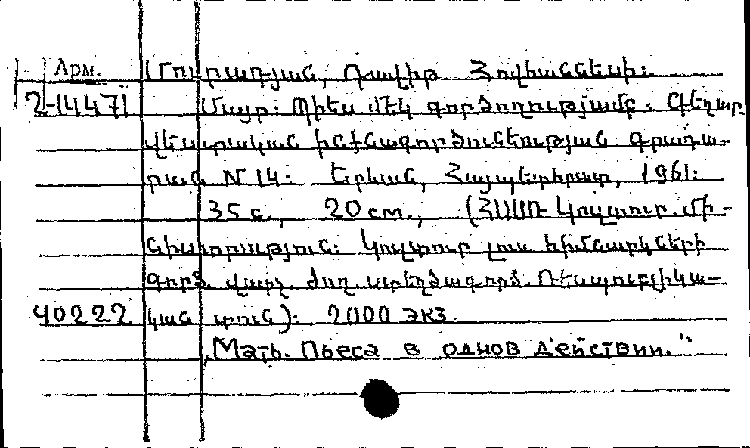 Арм. Մուրադյան, Դավիթ Հովհաննեսի:
2-14471 Մայր: Պիես մեկ գործողությամբ. Գեղար-
վեստական ինքնագործունեության գրադա-
րան N 14: Երևան, Հայպետհրատ, 1961:
35 с., 20 см., (ՀՍՍՌ Կուլտուր. մի-
նիստրություն: Կուլտուր լուս հիմնարկների
գործ. վարչ. Ժող. ստեղծագործ. Ռեսպուբլիկա-
40222 կան տուն): 2000 экз.
„Мать. Пьеса в однов действии.“